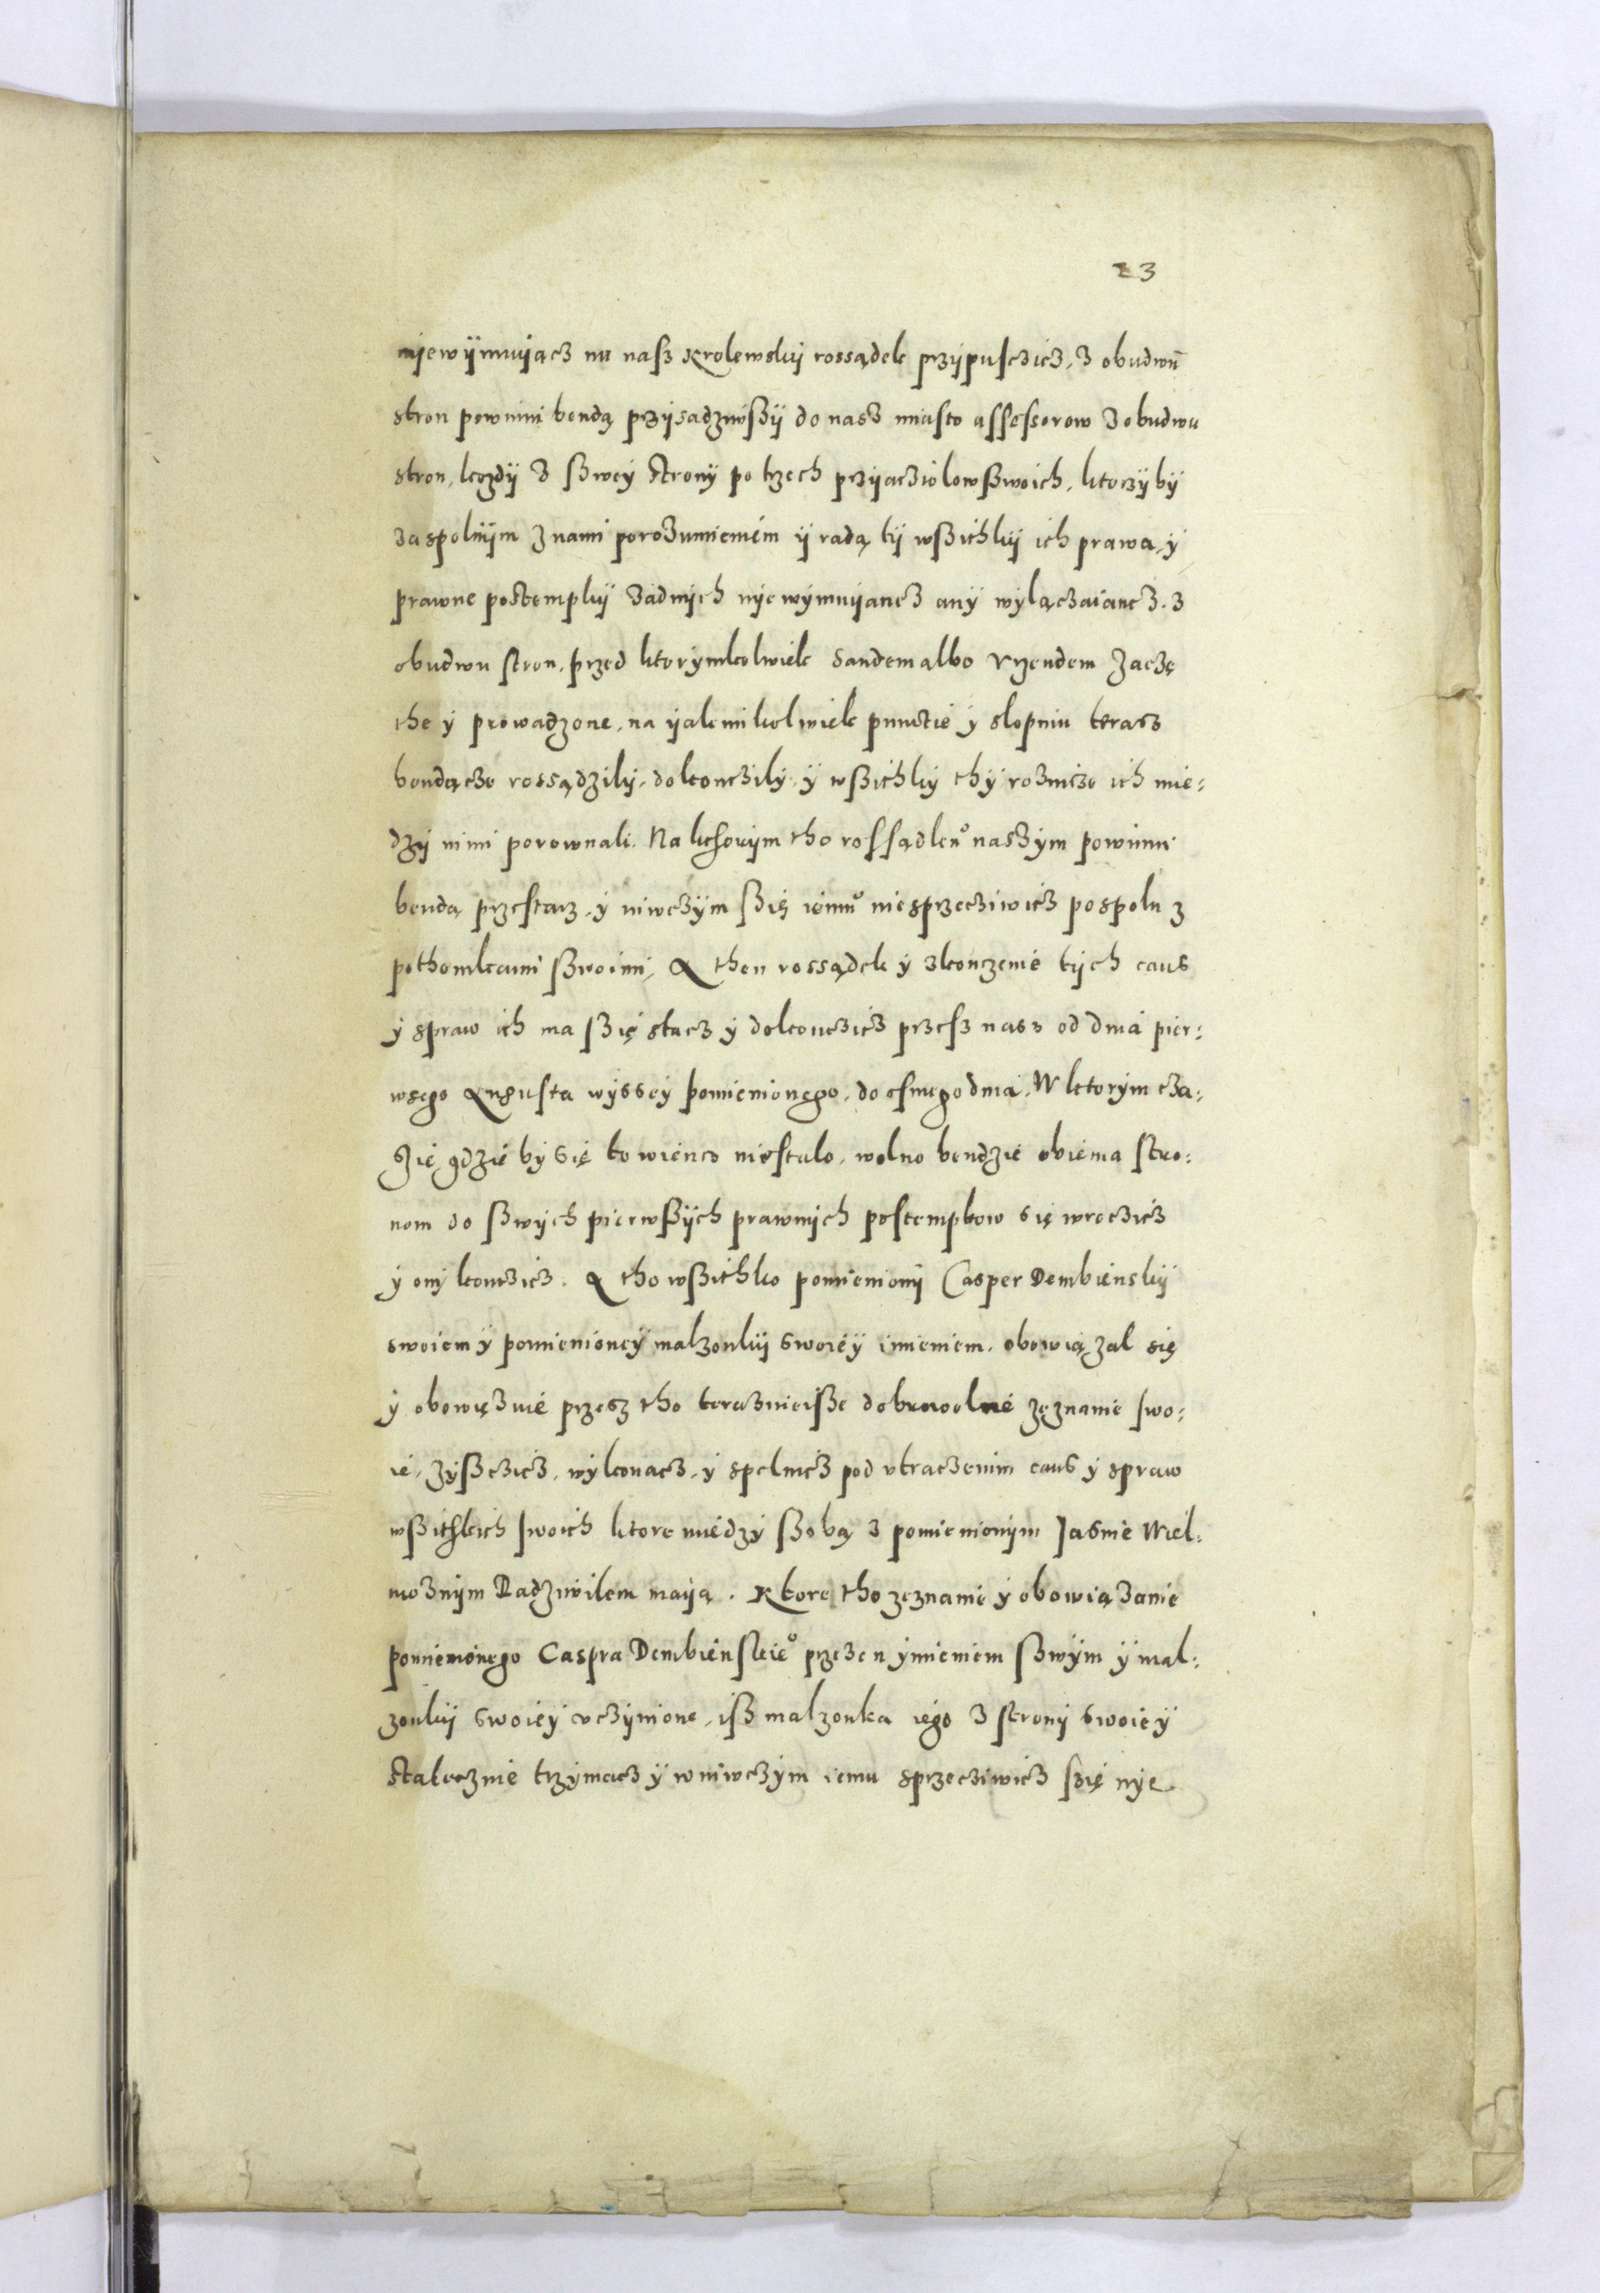 23
niewÿmuiącz na nasz krolewskÿ rossądek przÿpusczicz, z obudwu
stron powinni bendą przÿsadziwszÿ do nasz miasto assessorow z obudwu
stron, kozdÿ z szweÿ stronÿ po trzech przÿacziolow szwoich, ktorzÿ bÿ
za spolnÿm z nami porozumieniem ÿ radą tÿ wszithkÿ ich prawa, ÿ
prawne postempkÿ zadnÿch nÿewÿmuÿancz anÿ wÿlączaiancz. z
obudwu stron, przed ktorÿmkolwiek sandem albo vrzendem zaczę
the ÿ prowadzone, na ÿakemikolwiek punctie ÿ stopniu terasz
bendącze rossądzilÿ, dokonczilÿ, ÿ wszithkÿ thÿ roznicze ich mie:
dzÿ nimi porownali. Na kthorÿm tho rossądkuͦ naszÿm powinni
bendą przestacz, ÿ niwczÿm szię iemuͦ niesprzecziwicz pospolu z
pothomkami szwoimi, A then rossądek ÿ zkonczenie tÿch caus
ÿ spraw ich ma szię stacz ÿ dokonczicz przesz nasz od dnia pier:
wsego Augusta wÿsseÿ pomienionego, do osmego dnia. W ktorÿm cza:
szie gdzie bÿ się to wiencz niestalo, wolno bendzie obiema stro:
nom do szwÿch pierwszÿch prawnÿch postempkow się wroczicz
ÿ onÿ konczicz. A tho wszithko pomienionÿ Casper Dembienskÿ
swoiem ÿ pomienioneÿ malzonkÿ swoieÿ imieniem, obowiązal się
ÿ obowięzuie przesz tho teraznieisze dobrowolne zęznanie swo:
ie, zÿsczicz, wÿkonacz, ÿ spelnicz pod vtraczenim caus ÿ spraw
wszithkich swoich ktore miedzÿ szobą z pomienionÿm Jasnie Wiel:
moznÿm Radziwilem maÿą. Ktore tho zeznanie ÿ obowiązanie
pomienionego Caspra Dembienskieͦ przezen ÿmieniem szwÿm ÿ mal:
zonkÿ swoieÿ vczÿnione, isz malzonka iego z stronÿ swoieÿ
statecznie trzÿmacz ÿ w niwczÿm iemu sprzecziwicz szię nÿe